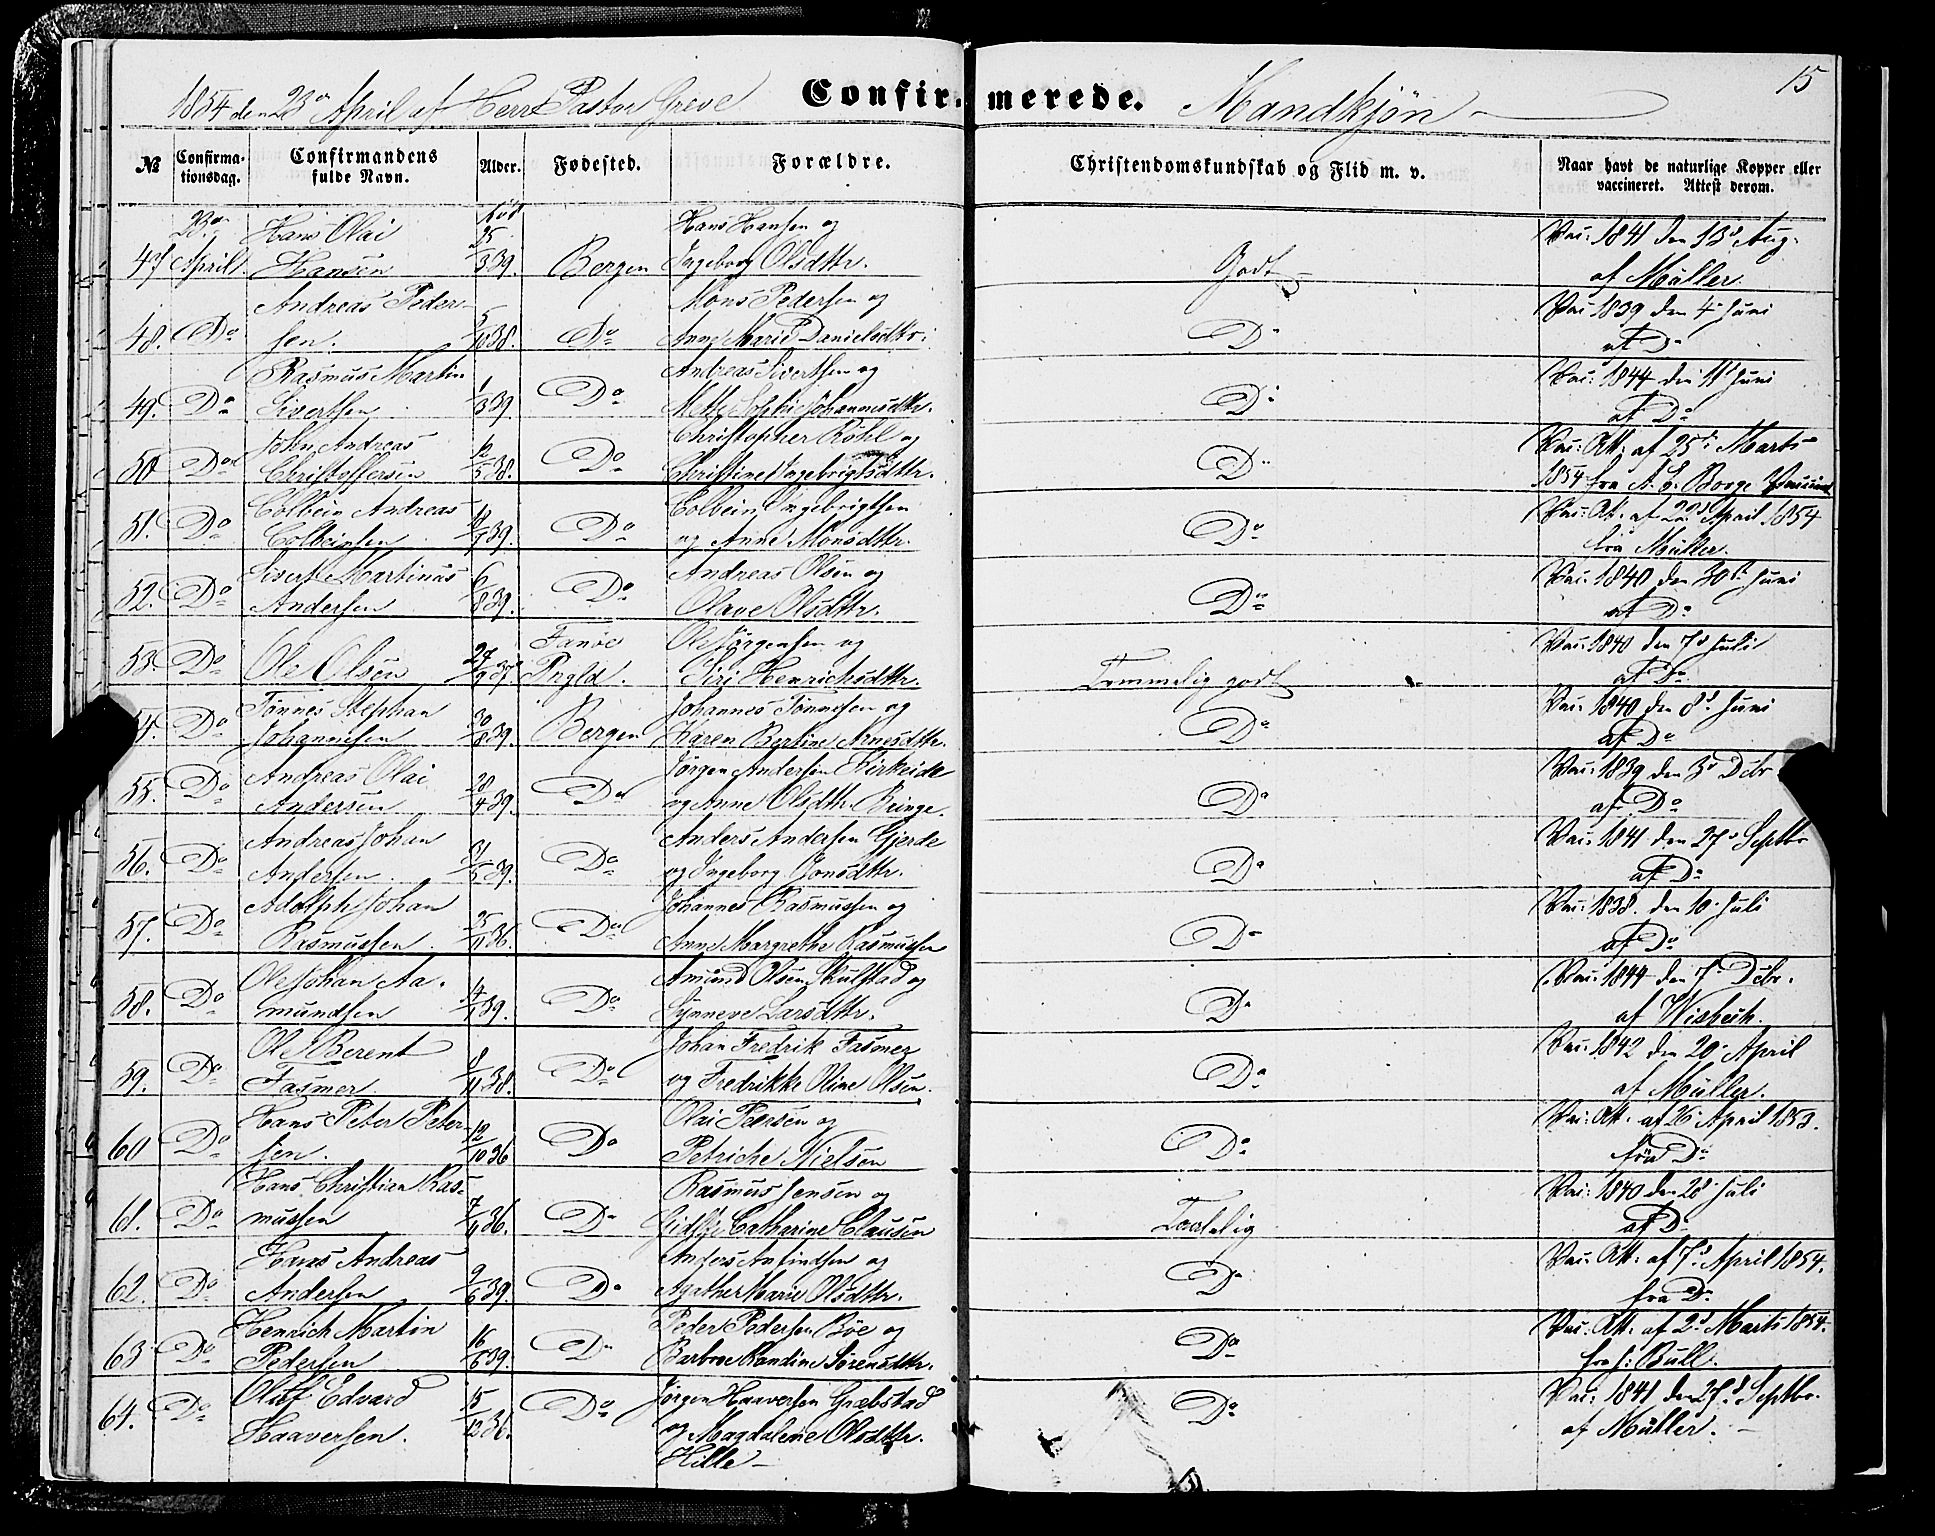 15
1854 den 23de April af Herr Pastor Greve Confirmerede. Mandkjøn
№ Confirmationsdag. Confirmandens fulde Navn. Alder. Fødested. Forældre. Christendomskundskab og Flid m. v. Naar havt de naturlige Kopper eller vaccineret. Attest derom.
23de Hans Olai född 25 Hans Hansen og Vac: 1841 den 13d Aug.
47 April Hansen 3 39. Bergen Ingeborg Olsdttr. Godt af Müller.
Andreas Peder- 5 Mons Pedersen og Vac 1839 den 4. Juni
48. Do sen. 10 38. Do Anne Marie Danielsdttr. Do af Do
Rasmus Martin 1 Andreas Sivertsen og Vac: 1844 den 11t Juni
49. Do Sivertsen 3 39. Do Mette Sophie Johannesdttr. Do af Do
John Andreas 12 Christopher Röhl og Vac: Att. af 25d Marts
50 Do Christoffersen 5 38. Do Christine Ingebrigtsdttr. Do 1854 fra A. E. Borge
Colbein Andreas Colbein Ingebrigtsen Vac: Att. af 22d April 1854
51. Do Colbeinsen 39. Do og Anne Monsdttr. Do fra Müller.
Sivert Martinus 6 Andreas Olsen og Vac: 1840 den 30t Juni
52. Do Andersen 8 39. Do Olave Olsdttr. Do af Do
27 Fanöe Ole Jörgensen og Vac: 1840 den 7d Juli
53. Do Ole Olsen 9 37. Prgld. Siri Henrichsdttr. Temmelig godt af Do
Tönnes Stephan 30 Johannes Tönnesen og Vac: 1840 den 8d Juni
54. Do Johannesen 8 39. Bergen Karen Bertine Arnesdttr. Do af Do
Andreas Olai 28 Jörgen Andersen Kirkeide Vac: 1839 den 3d Dcbr.
55. Do Andersen 4 39. Do og Anne Olsdttr. Bringe. Do af Do
Andreas Johan 31 Anders Andersen Gjerde Vac: 1841 den 27d Septbr
56. Do Andersen. 5 39. Do og Ingeborg Jonsdttr. Do af Do
Adolph Johan 25 Johannes Rasmussen og Vac: 1838. den 10. Juli
57. Do Rasmussen. 11 36. Do Anne Margrethe Rasmussen Do af Do
Ole Johan Aa- 14 Amund Olsen Skulstad og Vac: 1844 den 7d Dcbr.
58. Do mundsen 1 39. Do Synneve Larsdttr. Do af Wisbech.
Ole Berent 8 Johan Fredrik Fasmer Vac: 1842 den 20. April
59. Do Fasmer 11 38. Do og Fredrikke Oline Olsen. Do af Müller.
Hans Peter Peter- 12 Olai Petersen og Vac: Att. af 26 April 1853.
60 Do sen. 10 36 Do Petriche Nielsen Do fra Do
Hans Christian Ras- 7 Rasmus Jensen og Vac: 1840 den 28d Juli
61. Do mussen 11 36. Do Catharine Clausen Taalelig af Do
Hans Andreas 9 Anders Anfindsen og Vac: Att. af 7d April 1854.
62. Do Andersen 6 39. Do Agathe Marie Olsdttr. Do fra Do
Henrich Martin 16 Peder Pedersen Böe og Vac: Att. af 2d Marts 1854.
63 Do Pedersen 6 39. Do Barbroe Randine Sörensdttr. Do fra J: Bull.
Oluf Edvard 15 Jörgen Haaversen Græbstad Vac: 1841 den 27d Septbr.
64. Do Haaversen. 12 36. Do og Magdalene Olsdttr. Do af Müller.
Hille